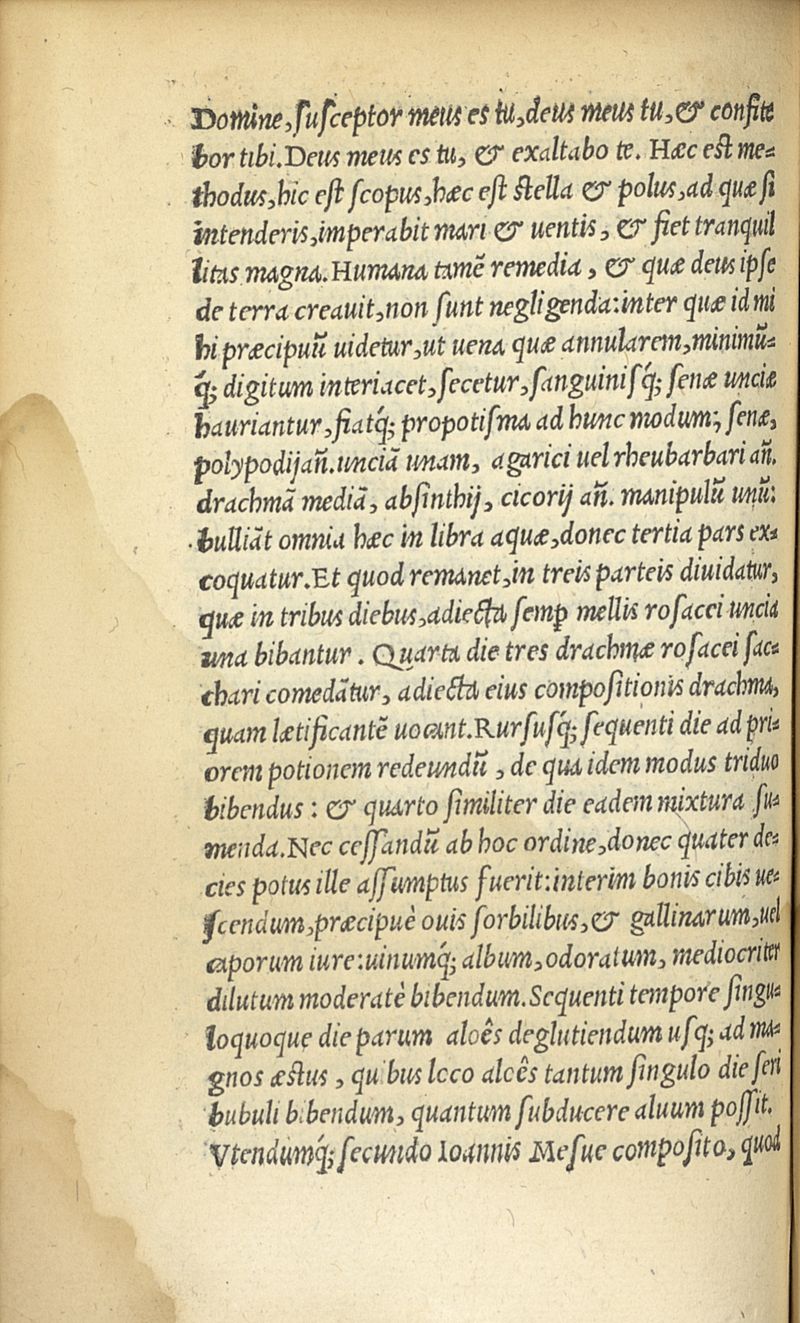 Domine, susceptor meus es tu, deus meus tu, & confite
bor tibi. Deus meus es tu, & exaltabo te. Hæc est me-
thodus, hic est scopus, hæc est stella & polus, ad quæ si
intenderis, imperabit mari & uentis, & fiet tranquil
litas magna. Humana tamē remedia, & quæ deus ipse
de terra creauit, non sunt negligenda: inter quæ id mi
hi præcipuū uidetur, ut uena quæ annularem, minimū-
q́; digitum interiacet, secetur, sanguinisq́; senæ unciæ
hauriantur, fiatq́; propotisma ad hunc modum; senæ,
polypodij añ. unciā unam, agarici uel rheubarbari añ.
drachmā mediā, absinthij, cicorij añ. manipulū unū:
bulliāt omnia hæc in libra aquæ, donec tertia pars ex-
coquatur. Et quod remanet, in treis parteis diuidatur,
quæ in tribus diebus, adiecta semp mellis rosacei uncia
una bibantur. Quarta die tres drachmæ rosacei sac-
chari comedātur, adiecta eius compositionis drachma,
quam lætificantē uocant. Rursusq́; sequenti die ad pri-
orem potionem redeundū, de qua idem modus triduo
bibendus: & quarto similiter die eadem mixtura su-
menda. Nec cessandū ab hoc ordine, donec quater de-
cies potus ille assumptus fuerit: interim bonis cibis ue-
scendum, præcipuè ouis sorbilibus, & gallinarum, uel
caporum iure: uinumq́; album, odoratum, mediocriter
dilutum moderatè bibendum. Sequenti tempore singu-
loquoque die parum aloês deglutiendum usq; ad ma-
gnos æstus, quibus loco aloês tantum singulo die seri
bubuli bibendum, quantum subducere aluum possit.
Vtendumq́; secundo Ioannis Mesue composito, quod